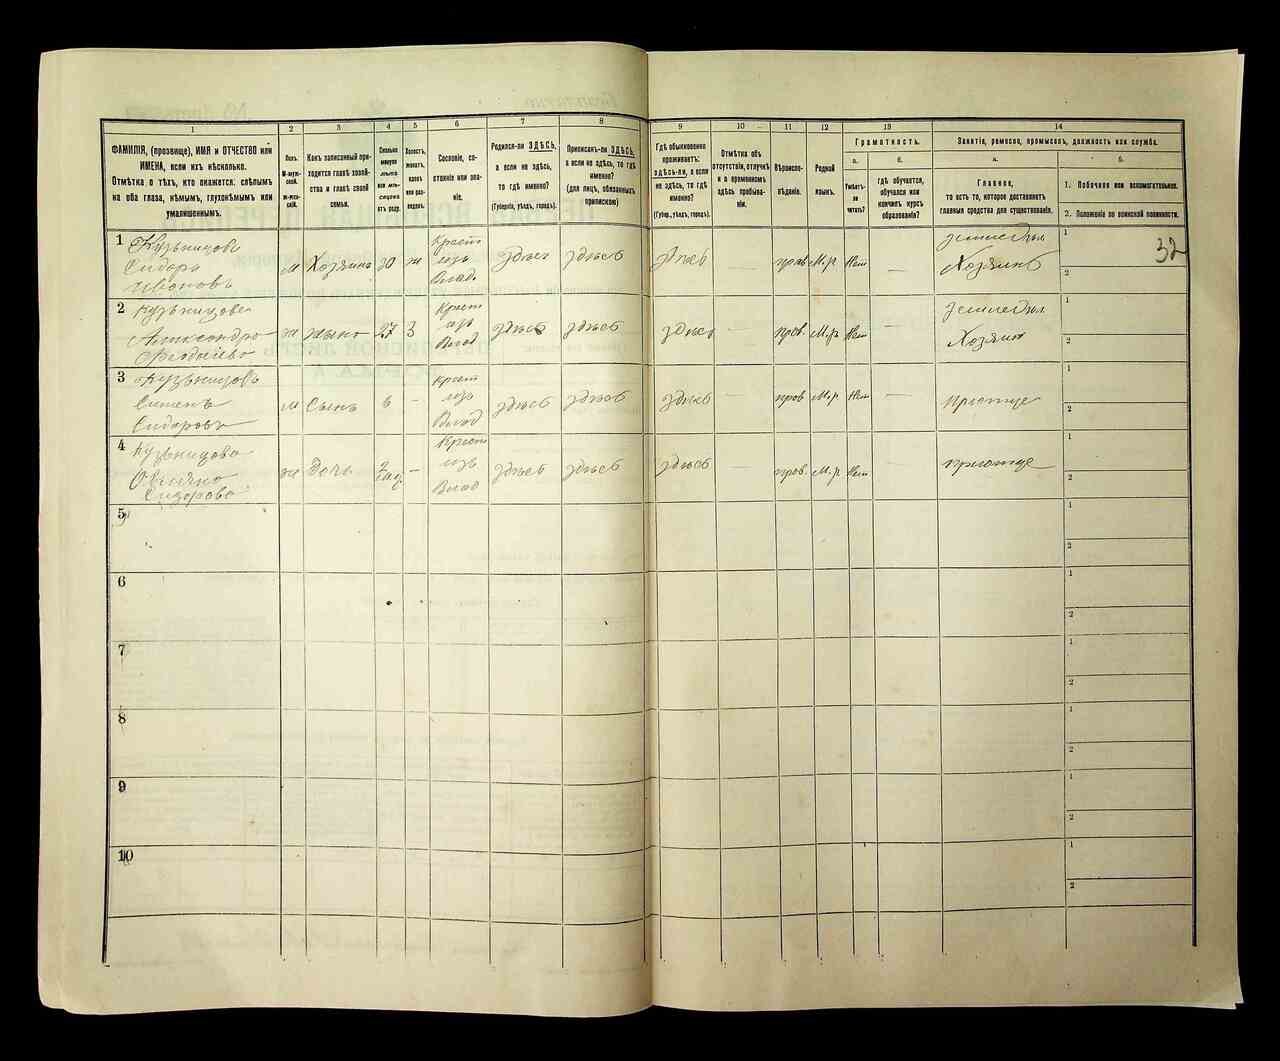 1
2
3
4
5
6
7
8
9
10
11
12
13
14
ФАМИЛІЯ, (прозвище), ИМЯ и ОТЧЕСТВО или
ИМЕНА, если ихъ нѣсколько.
Отмѣтка о тѣхъ, кто окажется: слѣпымъ
на оба глаза, нѣмымъ, глухонѣмымъ или
умалишеннымъ.
Полъ.
М-муж-
ской.
Ж-жен-
скій.
Какъ записанный при-
ходится главѣ хозяй-
ства и главѣ своей
семьи.
Сколько
минуло
лѣтъ
или мѣ-
сяцевъ
отъ роду.
Холостъ,
женатъ,
вдовъ
или раз-
веденъ.
Сословіе, со-
стояніе или зва-
ніе.
Родился-ли ЗДѢСЬ,
а если не здѣсь,
то гдѣ именно?
(Губернія, уѣздъ, городъ).
Приписанъ-ли ЗДѢСЬ,
а если не здѣсь, то гдѣ
именно?
(для лицъ, обязанныхъ
припискою)
Гдѣ обыкновенно
проживаетъ:
ЗДѢСЬ-ЛИ, а если
не здѣсь, то гдѣ
именно?
(Губер., уѣздъ, городъ).
Отмѣтка объ
отсутствіи, отлучкѣ
и о временномъ
здѣсь пребыва-
ніи.
Вѣроиспо-
вѣданіе.
Родной
языкъ.
Грамотность.
а.
б.
Умѣетъ-
ли
читать?
гдѣ обучается,
обучался или
кончилъ курсъ
образованія?
Занятіе, ремесло, промыселъ, должность или служба.
а.
б.
Главное,
то есть то, которое доставляетъ
главныя средства для существованія.
1. Побочное или вспомогательное.
2. Положеніе по воинской повинности.
32
1 Кузьницовъ
Сидоръ
Ивановъ
м Хозяинъ 30 ж
Крест
изъ
Влад.
здѣсь здѣсь здѣсь — прав М.р Нет —
земледѣл
Хозяинъ
1
2
2 Кузьницова
Александра
ж жена 27 З
Крест
изъ
Влад
здѣсь здѣсь здѣсь — прав М.р Нет —
земледѣл
Хозяин
1
2
3 Кузьницовъ
Семенъ
Сидоровъ
м Сынъ 6 —
Крест
изъ
Влад
здѣсь здѣсь здѣсь — прав М.р Нет —
1
2
4 Кузьницова
Сидорова
ж Дочь —
Крест
изъ
Влад
здѣсь здѣсь здѣсь — прав. М.р Нет —
1
2
5
1
2
6
1
2
7
1
2
8
1
2
9
1
2
10
1
2